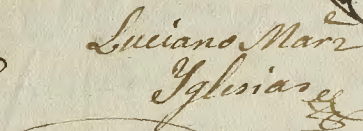 Luciano Marz
Yglesias